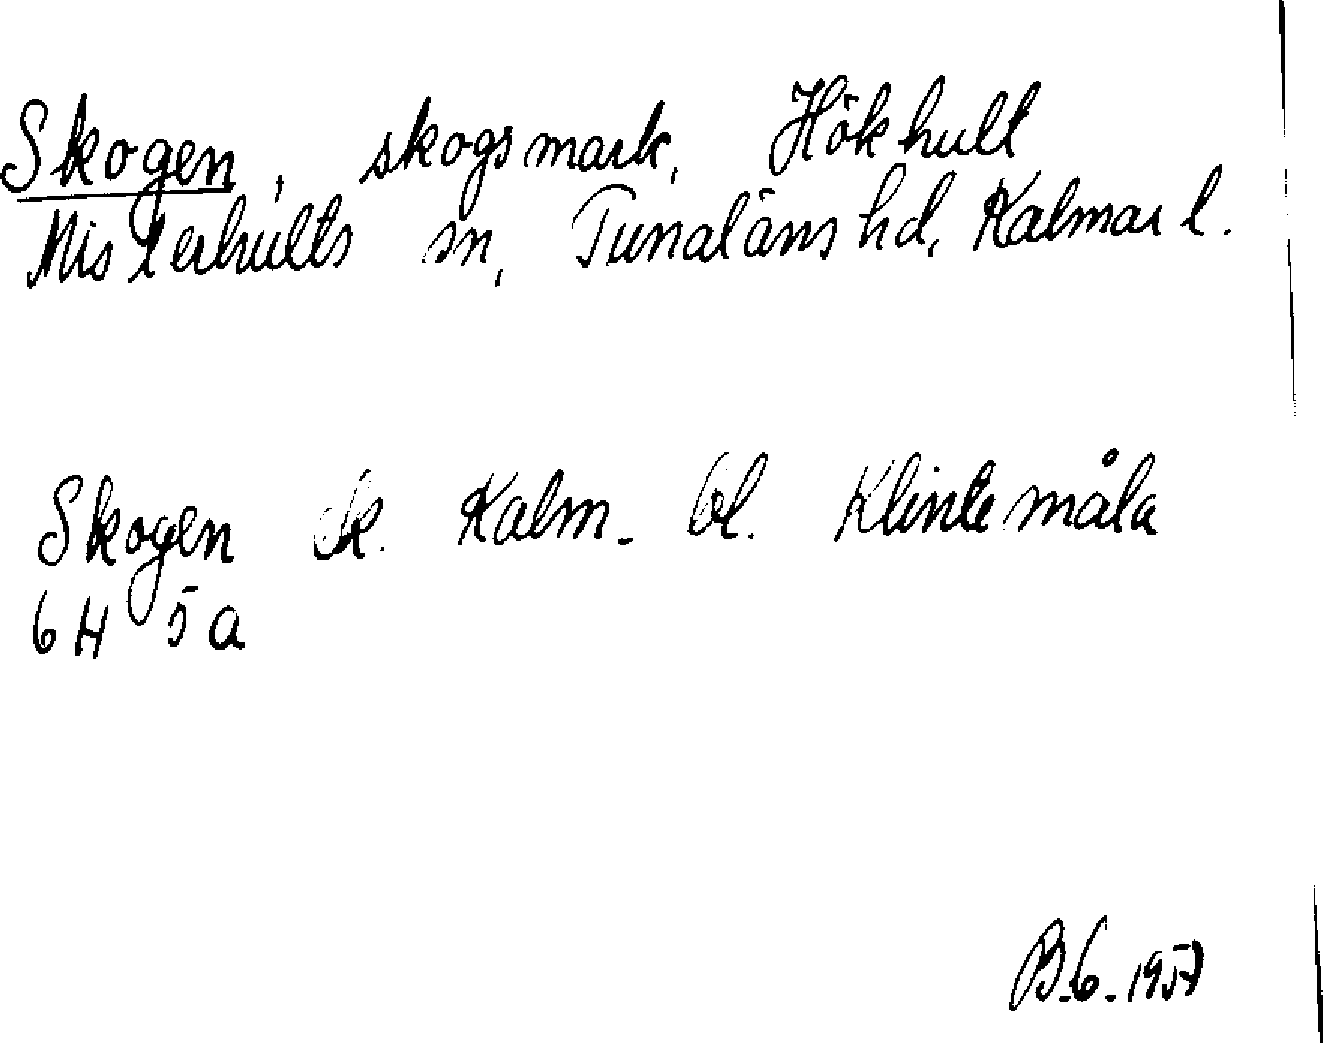 Skogen, skogsmark, Hökhult
Misterhults sn, Tunaläns hd, Kalmar l.
Skogen ek. Kalm. bl. Klintemåla
6H 5a
B.G. 1957